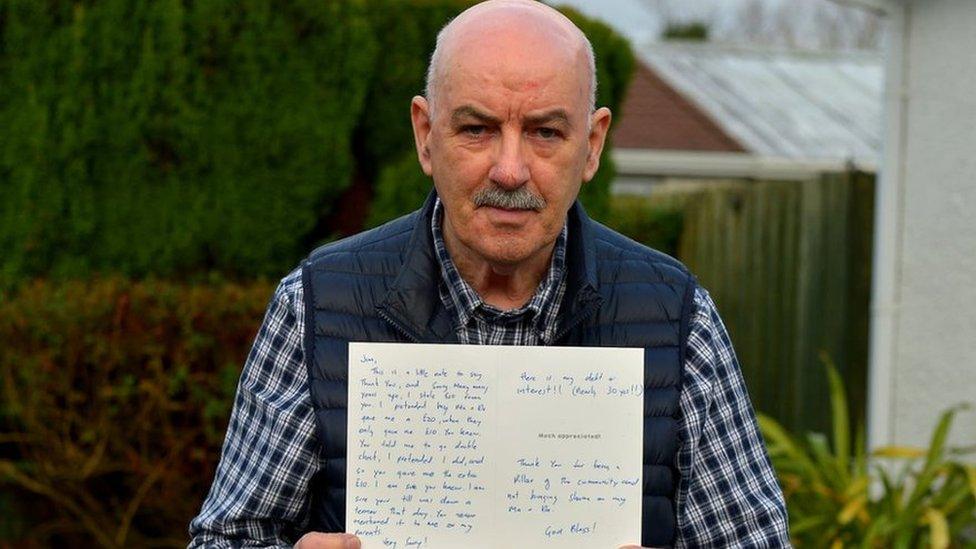 Jim,
This is a little note to say
Thank you, and Sorry. Many many
years ago, I stole £10 from
you. I pretended my Ma + Da
gave me a £20, when they
only gave me £10. You knew.
You told me to go double
check, I pretended I did, and
so you gave me the extra
£10. I am sure you knew. I am
sure your till was down a
tenner that day. You never
mentioned it to me or my
parents.
Very Sorry!
Here is my debt +
interest!! (Nearly 30 yrs!!)
Much appreciated!
Thank You for being a
Pillar of the community and
not bringing shame on my
Ma + Da.
God Bless!